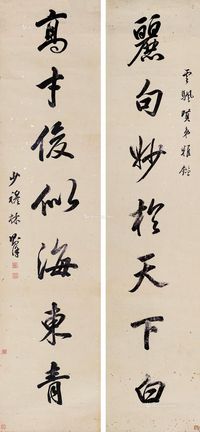 雲颿賢弟雅鑒
麗句妙於天下白
高才俊似海東青
少穆林則徐